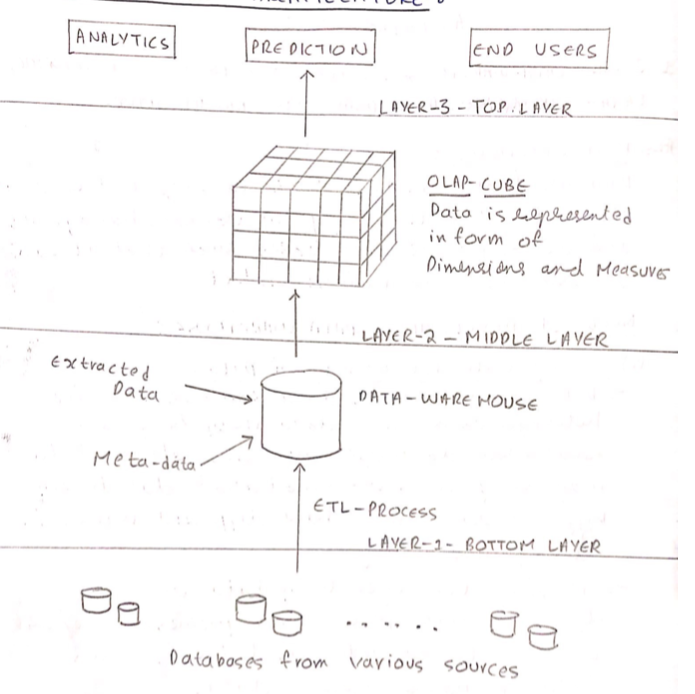 ANALYTICS
PREDICTION
END USERS
LAYER-3-TOP LAYER
OLAP-CUBE
Data is represented
in form of
Dimensions and Measures
LAYER-2-MIDDLE LAYER
Extracted
Data
DATA-WAREHOUSE
Meta-data
ETL-PROCESS
LAYER-1-BOTTOM LAYER
Databases from various sources